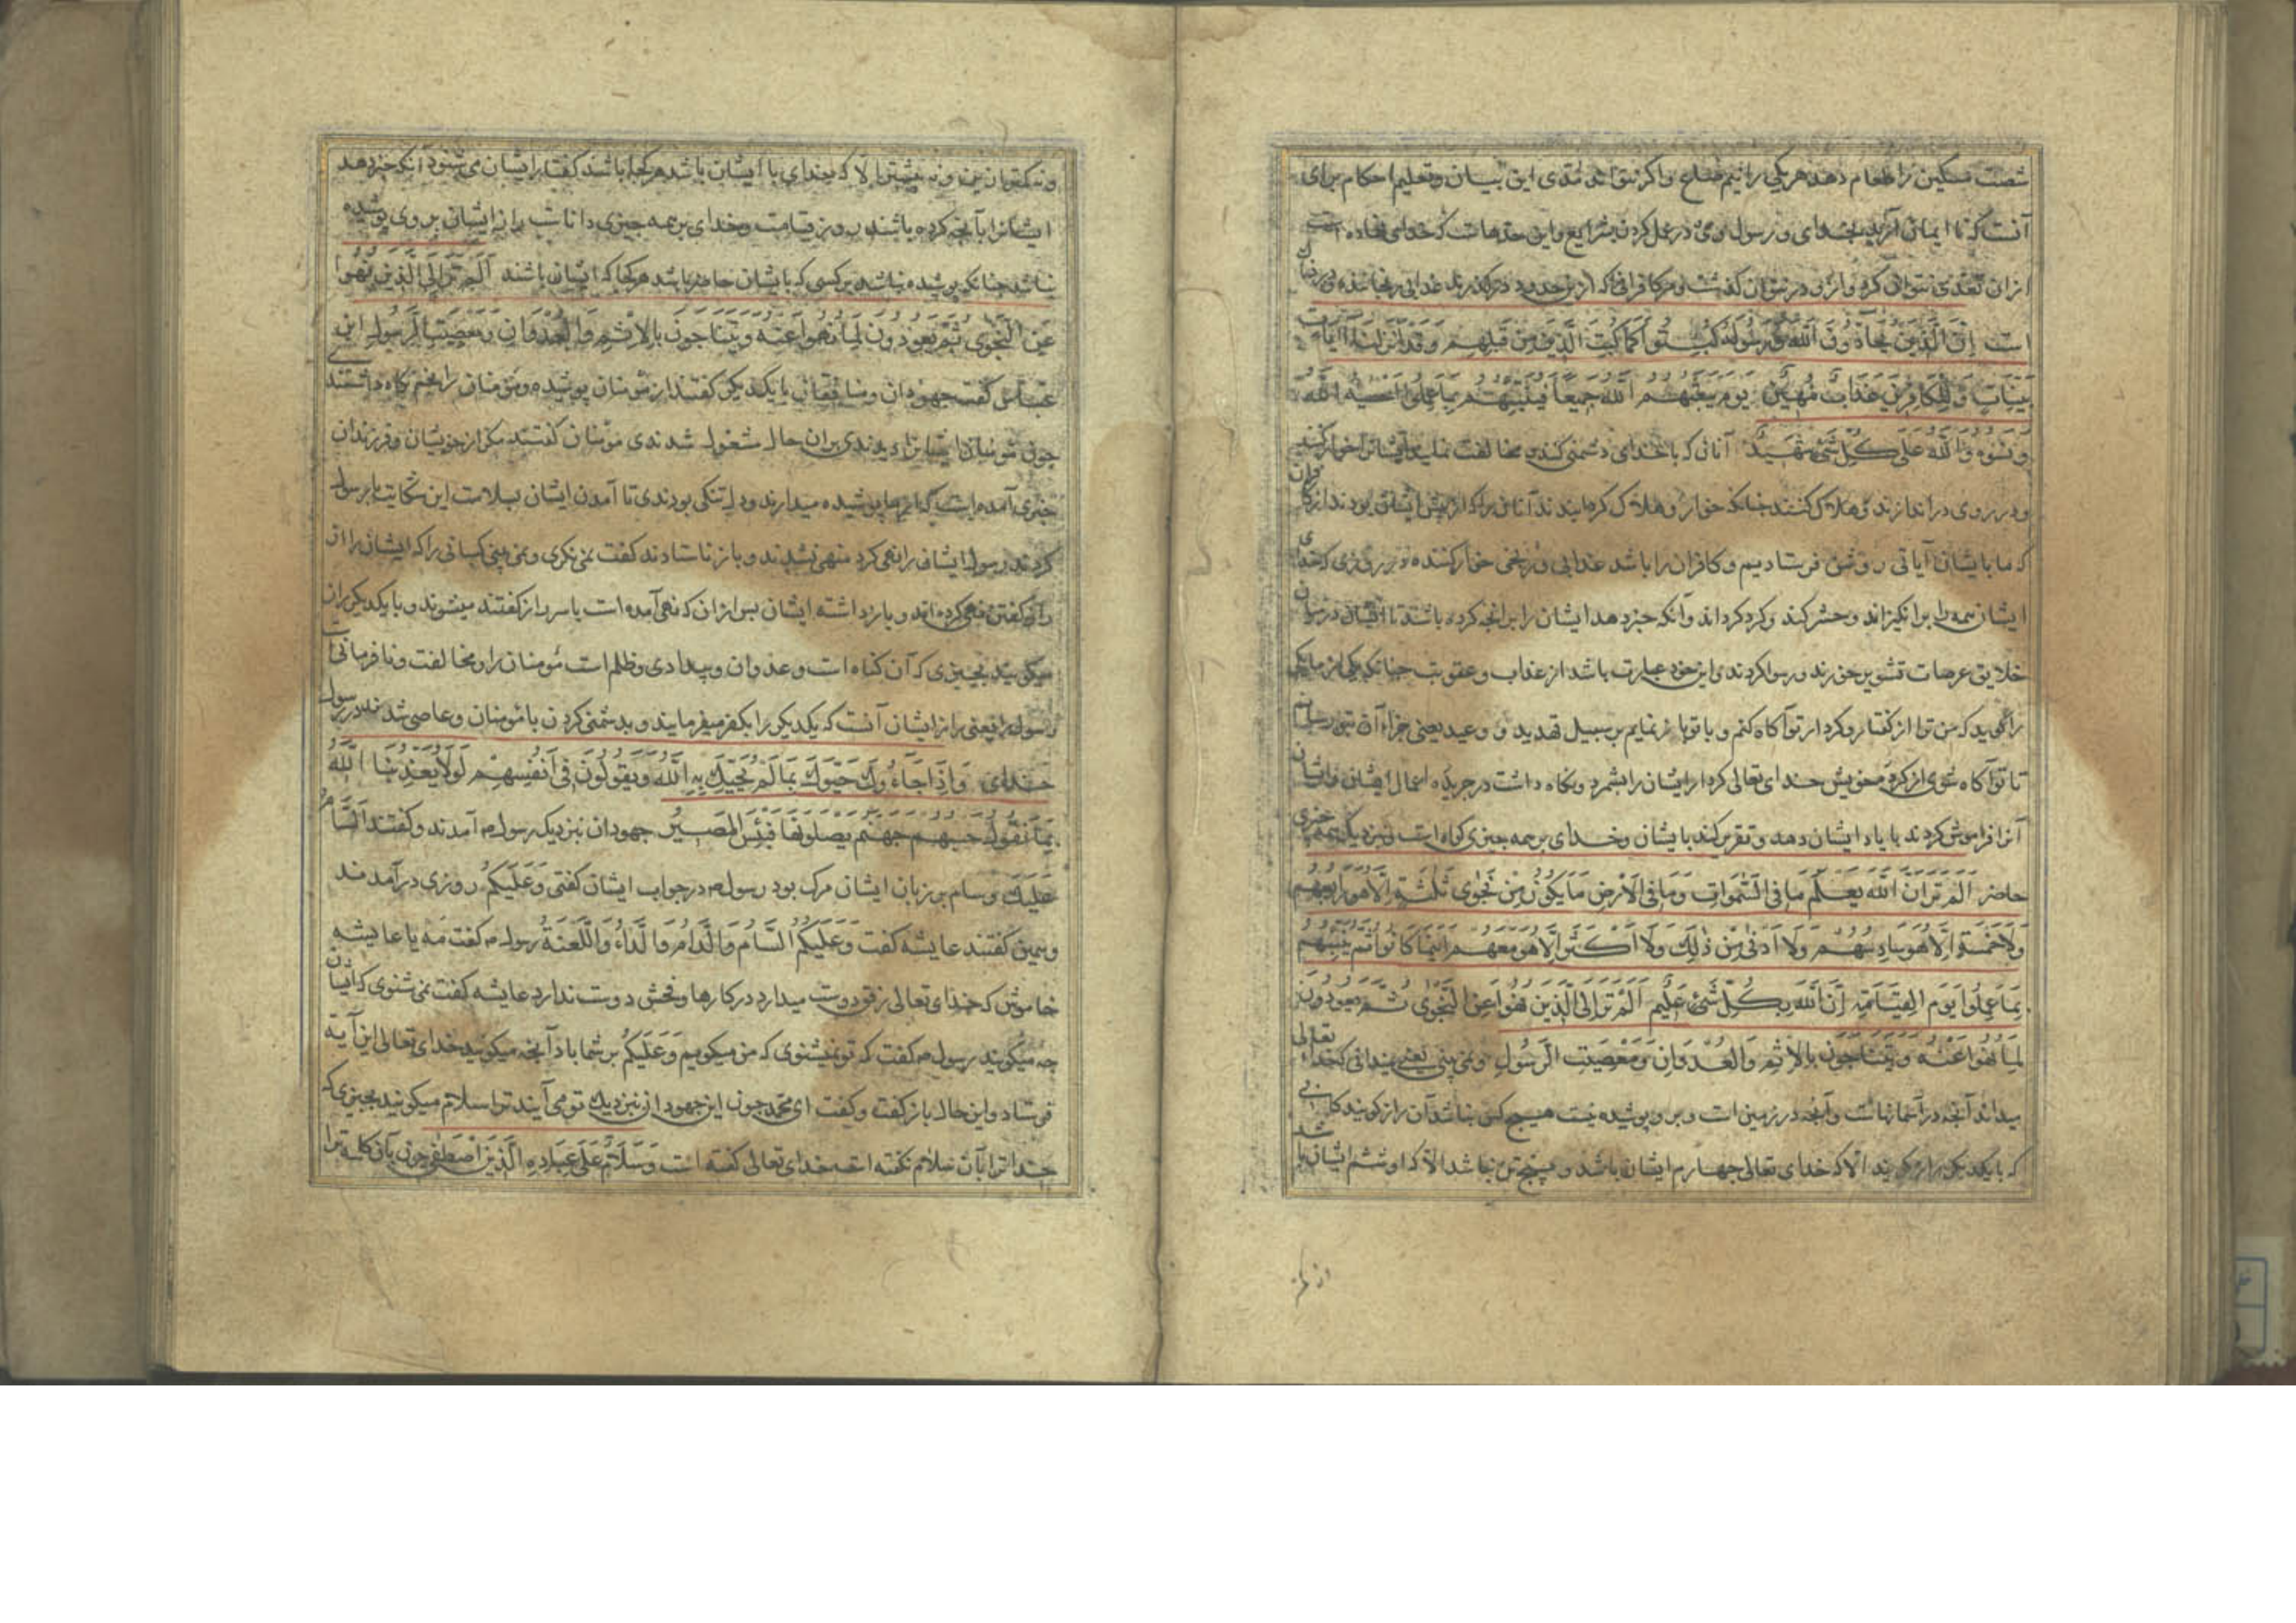 شصت مسکین را طعام دهد هر یکی را نیم صاع واکر نتواند این بیان و تعلیم احکام برای
آنست که تا ایمان آرید بخدای و رسول وی در عمل کردن بشرایع و این حدهاست که خدای نهاده است
از ان تعدی نتوان کرد و ازوی در نتوان کذشت و مر کافرانی که ازین حدود درکذرند عذابی رنجاننده
است اِنَّ الَّذینَ یُحَادُّونَ اللّٰهَ وَرَسُولَهُ کُبِتُوا کَمَا کُبِتَ الَّذینَ مِنْ قَبْلِهِمْ وَقَدْ اَنْزَلْنَا آیَاتٍ
بَیِّنَاتٍ وَلِلْکَافِرینَ عَذَابٌ مُهینٌ یَوْمَ یَبْعَثُهُمُ اللّٰهُ جَمیعًا فَیُنَبِّئُهُمْ بِمَا عَمِلُوا اَحْصٰیهُ اللّٰهُ
وَنَسُوهُ وَاللّٰهُ عَلٰی کُلِّ شَیْءٍ شَهیدٌ آنانی که با خدای دشمنی کنند و مخالفت نمایند ایشانرا خوار کنند
و در روی در اندازند و هلاک کنند جنانکه خوار و هلاک کرمانیدند آنانی را که از پیش ایشان بودند از کافران
که ما بایشان آیاتی روشن فرستادیم و کافران را باشد عذابی دوزخی خوار کننده در روزی که خدای
ایشان همه را برانکیزاند و حشر کند و کرد کرداند وآنکه خبر دهد ایشان را بر انجه کرده باشند تا ایشان در میان
خلایق عرصات تشویر خورند و رسوا کردند و این خود عبارت باشد از عذاب و عقوبت جنانکه یکی از ما یکی
را کوید که من ترا از کفتار و کردار تو آکاه کنم و با تو باز نمایم بر سبیل تهدید و وعید یعنی جزاء آن بتو رسانم
تا تو آکاه شوی از کرده خویش خدای تعالی کردار ایشان را بشمرد و نکاه داشت در جریده اعمال ایشان و ایشان
آنرا فراموش کردند با یاد ایشان دهد و تقریر کند بایشان و خدای بر همه جیزی کواه است و نزدیک همه جیزی
حاضر اَلَمْ تَرَ اَنَّ اللّٰهَ یَعْلَمُ مَا فِی السَّمٰوَاتِ وَمَا فِی الْاَرْضِ مَا یَکُونُ مِنْ نَجْوٰی ثَلٰثَةٍ اِلَّا هُوَ رَابِعُهُمْ
وَلَا خَمْسَةٍ اِلَّا هُوَ سَادِسُهُمْ وَلَا اَدْنٰی مِنْ ذٰلِکَ وَلَا اَکْثَرَ اِلَّا هُوَ مَعَهُمْ اَیْنَمَا کَانُوا ثُمَّ یُنَبِّئُهُمْ
بِمَا عَمِلُوا یَوْمَ الْقِیَامَةِ اِنَّ اللّٰهَ بِکُلِّ شَیْءٍ عَلیمٌ اَلَمْ تَرَ اِلَی الَّذینَ نُهُوا عَنِ النَّجْوٰی ثُمَّ یَعُودُونَ
لِمَا نُهُوا عَنْهُ وَیَتَنَاجَوْنَ بِالْاِثْمِ وَالْعُدْوَانِ وَمَعْصِیَتِ الرَّسُولِ ونمی بینی یعنی نمیدانی که خداء تعالی
میداند آنجه در آسمانهاست وآنجه در زمین است و برو پوشیده نیست هیچ کس نباشد آن راز کویند کانی
که با یکدیکر راز کویند الّا که خدای تعالی جهارم ایشان باشد و پنج تن نباشد الّا که او ششم ایشان باشد
و نه کمتر ازین و نه بیشتر الّا که بخدای با ایشان باشد هر کجا باشند کفتار ایشان می شنود آنکه خبر دهد
ایشانرا بآنجه کرده باشند روز قیامت وخدای بر همه جیزی داناست راز ایشان بر وی پوشیده
نباشد جنانکه پوشیده نباشد بر کسی که بایشان حاضر باشد هر کجا که ایشان باشند اَلَمْ تَرَ اِلَی الَّذینَ نُهُوا
عَنِ النَّجْوٰی ثُمَّ یَعُودُونَ لِمَا نُهُوا عَنْهُ وَیَتَنَاجَوْنَ بِالْاِثْمِ وَالْعُدْوَانِ وَمَعْصِیَتِ الرَّسُولِ ابن
عباس کفت جهودان و منافقان با یکدیکر کفتند از مومنان پوشیده و مومنان را بخشم نکاه داشتند
جون مومنان ایشانرا دیدندی بران حال مشغول شدندی مؤمنان کفتند مکر از خویشان و فرزندان
خبری آمده است که از ما پوشیده میدارند و دلتنکی بودندی تا آمدن ایشان بسلامت این شکایت با رسول
کردند رسول ایشان را نهی کرد منهی نشدند و باز ناستادند کفت نمی نکری و نمی بینی کسانی را که ایشان را از
راز کفتن نهی کرده اند و باز داشته ایشان بس ازان که نهی آمده است با سر راز کفتند میشوند و با یکدیکر راز
میکویند بجیزی که آن کناه است و عدوان و بیدادی و ظلم است مومنان را و مخالفت و نافرمانی
رسول را یعنی راز ایشان آنست که یکدیکر را بکفر میفرمایند و بدشمنی کردن با مومنان و عاصی شدند در رسول
خدای وَاِذَا جَاءُوکَ حَیَّوْکَ بِمَا لَمْ یُحَیِّکَ بِهِ اللّٰهُ وَیَقُولُونَ فی اَنْفُسِهِمْ لَوْلَا یُعَذِّبُنَا اللّٰهُ
بِمَا نَقُولُ حَسْبُهُمْ جَهَنَّمُ یَصْلَوْنَهَا فَبِئْسَ الْمَصیرُ جهودان نزدیک رسول م آمدند و کفتند السّام
عَلَیْکَ وسام بر زبان ایشان مرک بود رسول م در جواب ایشان کفتی وَعَلَیْکُمْ روزی درآمدند
وهمین کفتند عایشه کفت وَعَلَیْکُمُ السَّامُ وَالدَّامُ وَالدَّاءُ وَاللَّعْنَةُ رسول م کفت مَه یا عایشه
خاموش که خدای تعالی رفق دوست میدارد در کارها و فحش دوست ندارد عایشه کفت نمی شنوی که ایشان
جه میکویند رسول م کفت که تو نمیشنوی که من میکویم وَعَلَیْکُمْ بر شما باد آنجه میکویند خدای تعالی این آیه
فرستاد و این حال باز کفت و کفت ای محمّد جون این جهودان نزدیک تو می آیند ترا سلام میکویند بجیزی که
خدا ترا بآن سلام نکفته است خدای تعالی کفته است وَسَلَامٌ عَلٰی عِبَادِهِ الَّذینَ اصْطَفٰی جون بآن کلمه ترا